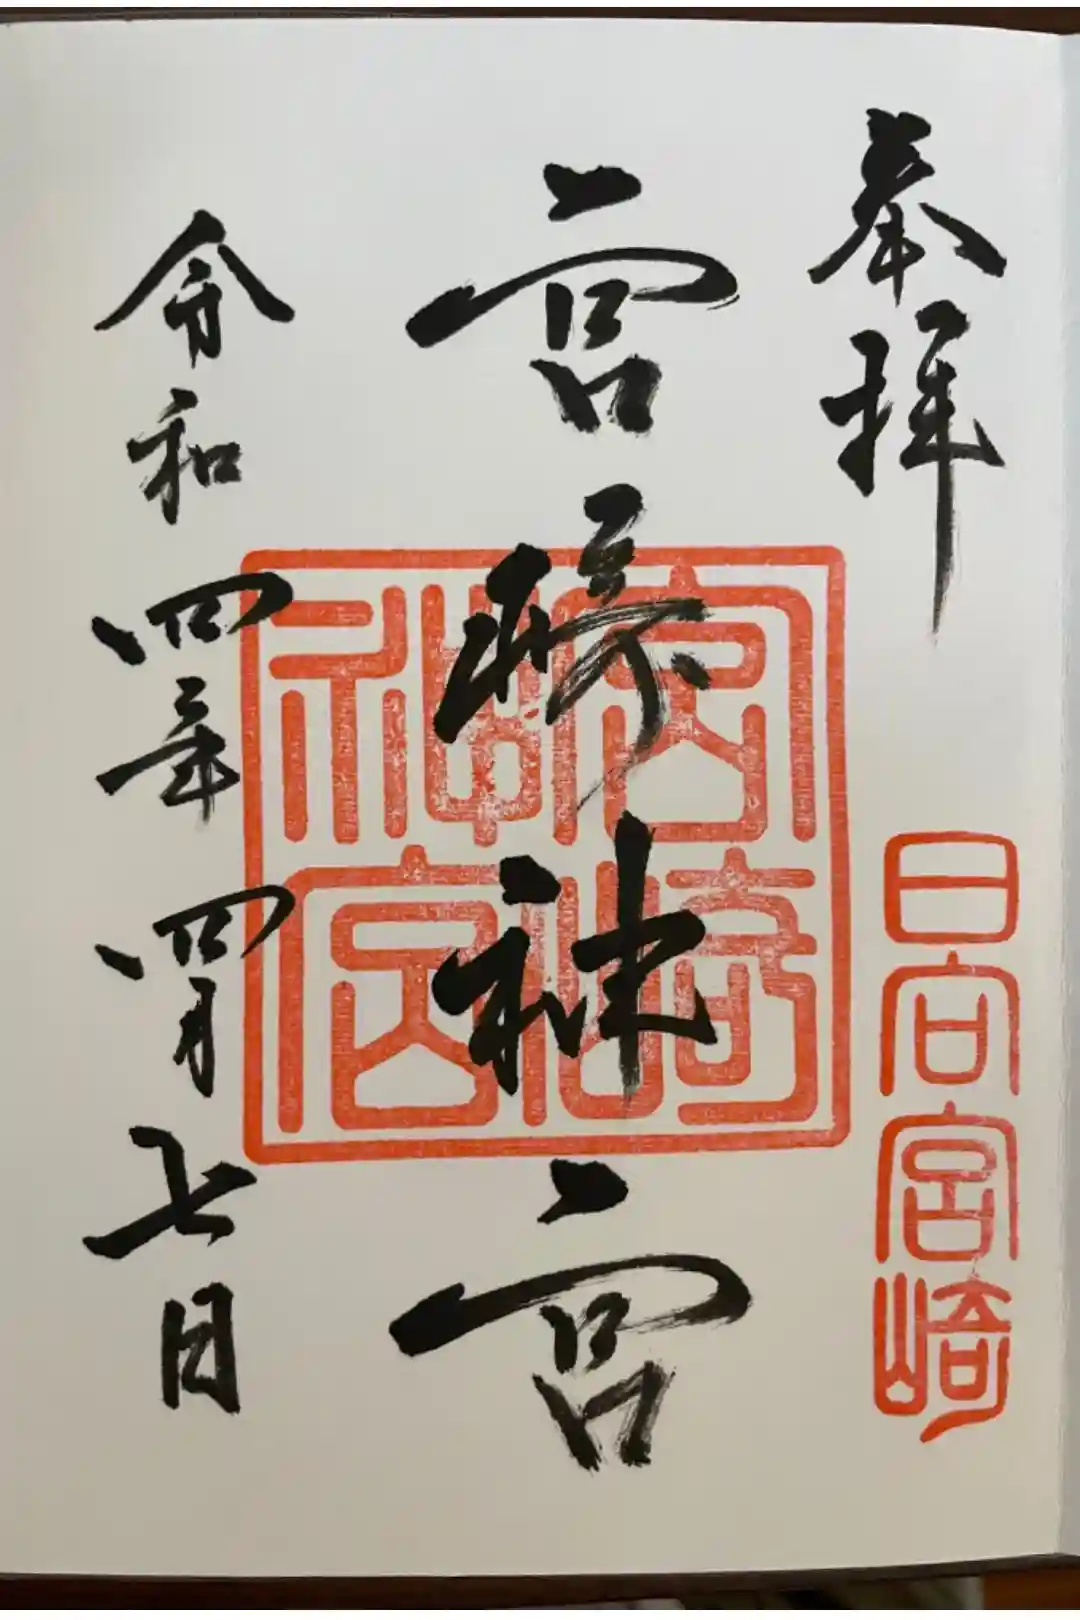 奉拝
日向宮崎
宮崎神宮
宮崎神宮
令和四年四月七日